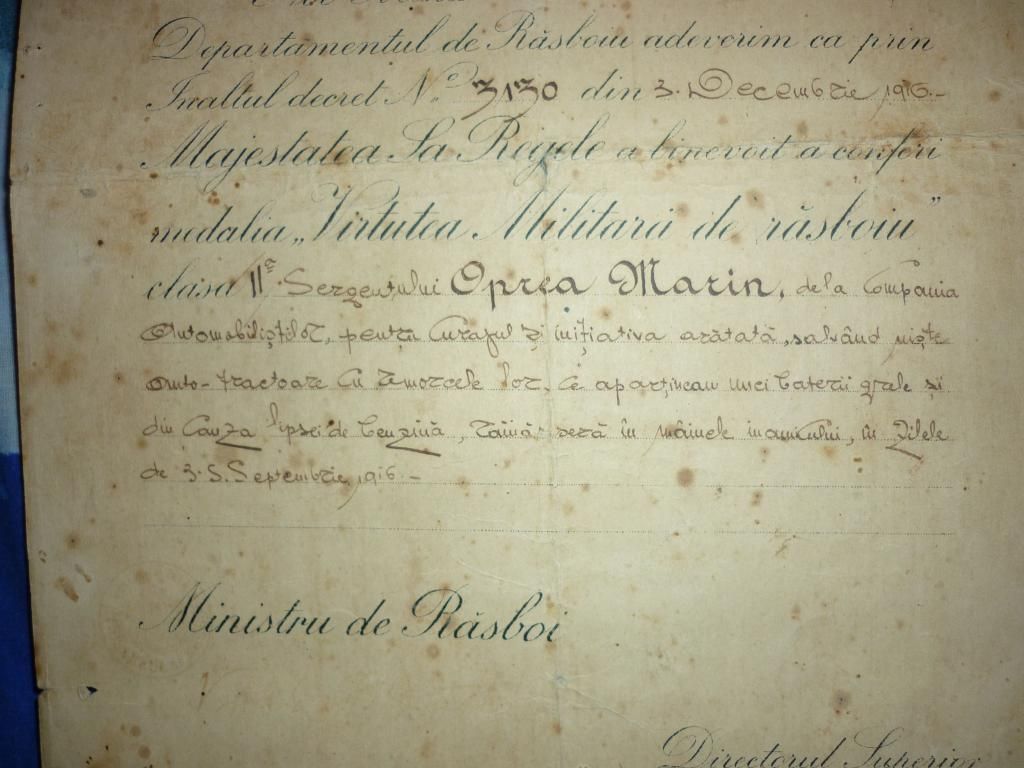 Departamentul de Răsboiu adeverim ca prin
Inaltul decret No 3130 din 3. Decembrie 1916.-
Majestatea Sa Regele a binevoit a conferi
medalia „Virtutea Militară de răsboiu”
clasa IIa Sergentului Oprea Marin, dela Compania
Automobiliștilor, pentru curajul și inițiativa arătată, salvând niște
auto-tractoare cu remorcele lor, ce aparțineau unei baterii grele și
din cauza lipsei de benzină, în mâinele inamicului, în zilele
de 3.5. Septembrie 1916.-
Ministru de Răsboi
Directorul Superior